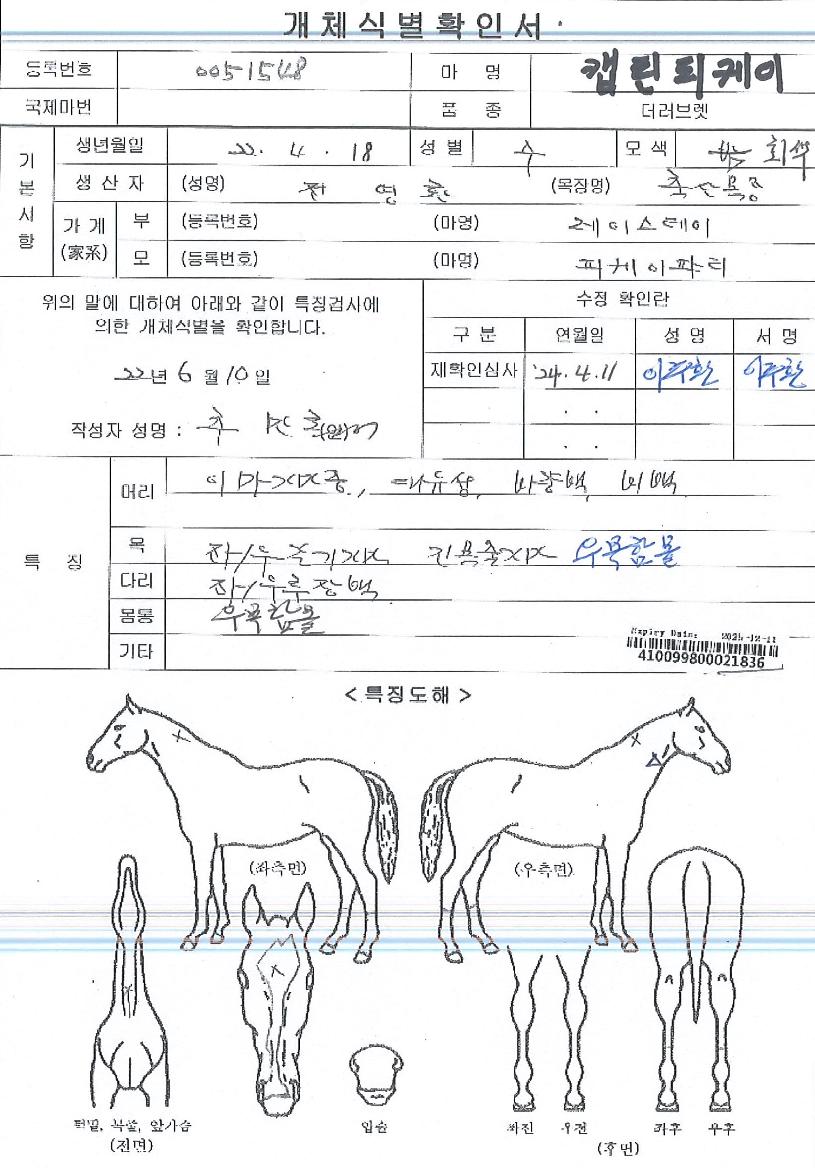 개체식별확인서
등록번호 0051548 마 명 캡틴피케이
국제마번 품 종 더러브렛
기본사항
생년월일 22. 4. 18 성별 수 모색 회색
생산자 (성명) (목장명) 축산목장
가계 (家系) 부 (등록번호) (마명) 레이스데이
모 (등록번호) (마명) 피케이파티
위의 말에 대하여 아래와 같이 특징검사에
의한 개체식별을 확인합니다.
22년 6월 10일
작성자 성명 :
수정 확인란
구 분 연월일 성 명 서 명
재확인심사 '24. 4. 11 이주환 이주환
. .
. .
특 징
머리 이마가마중, 대유성, 비량백, 비백
목 좌/우 우목함몰
다리 좌/우후장백
몸통 우목함몰
기타
Expiry Date: 2025-12-11
410099800021836
<특징도해>
(좌측면) (우측면)
턱밑, 복쪽, 앞가슴
(전면)
입술
좌전 우전 좌후 우후
(후면)